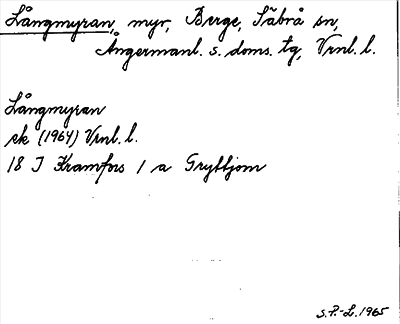 Långmyran, myr, Berge, Säbrå sn,
Ångermanl. s. doms. tg, Vrnl. l.
Långmyran
ek (1964) Vrnl. l.
18 I Kramfors 1 a Gryttjom
S.P.-L. 1965